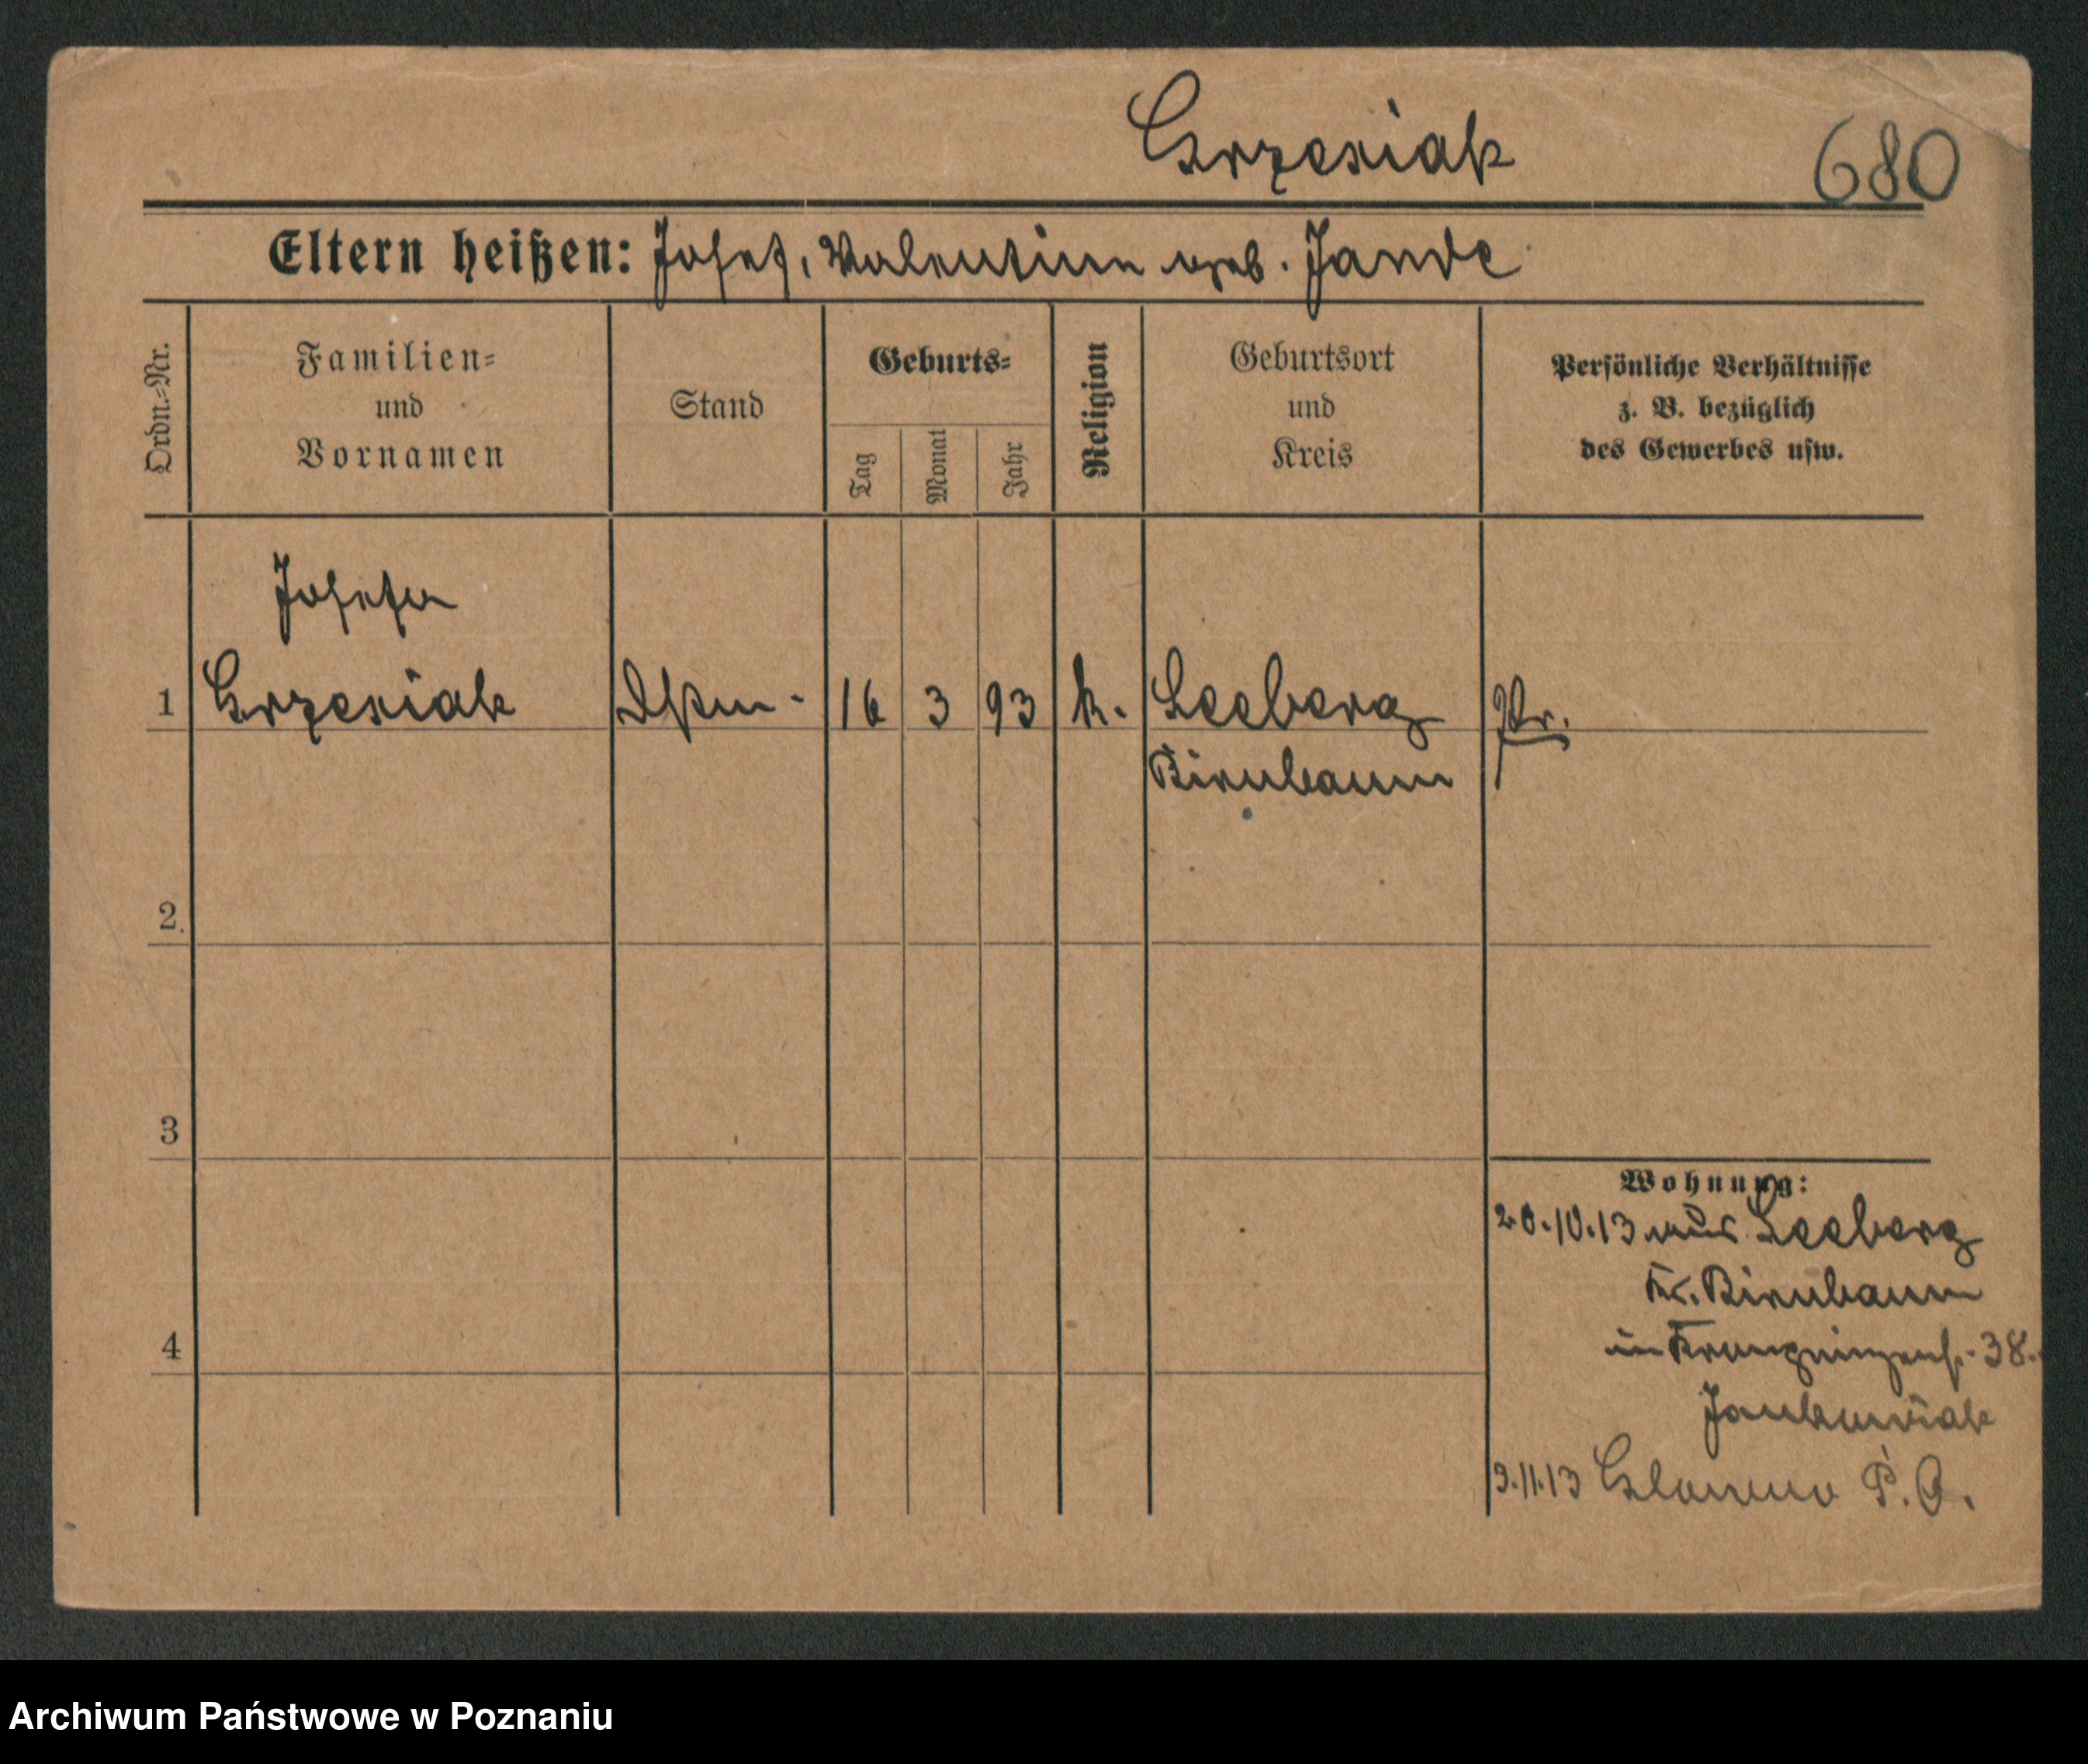 Grzesiak
680
Eltern heißen: Josef, Valentina geb. Jande
Ordn.-Nr.
Familien- und Vornamen
Stand
Geburts-
Tag
Monat
Jahr
Religion
Geburtsort und Kreis
Persönliche Verhältnisse
z. B. bezüglich
des Gewerbes usw.
Josefa
1 Grzesiak 16 3 93 k. Seeberg Pr.
Birnbaum
2.
3
4
Wohnung:
20.10.13 aus Seeberg
Kr. Birnbaum
in Kronprinzenstr. 38.
9.11.13 Glowno P. O.
Archiwum Państwowe w Poznaniu